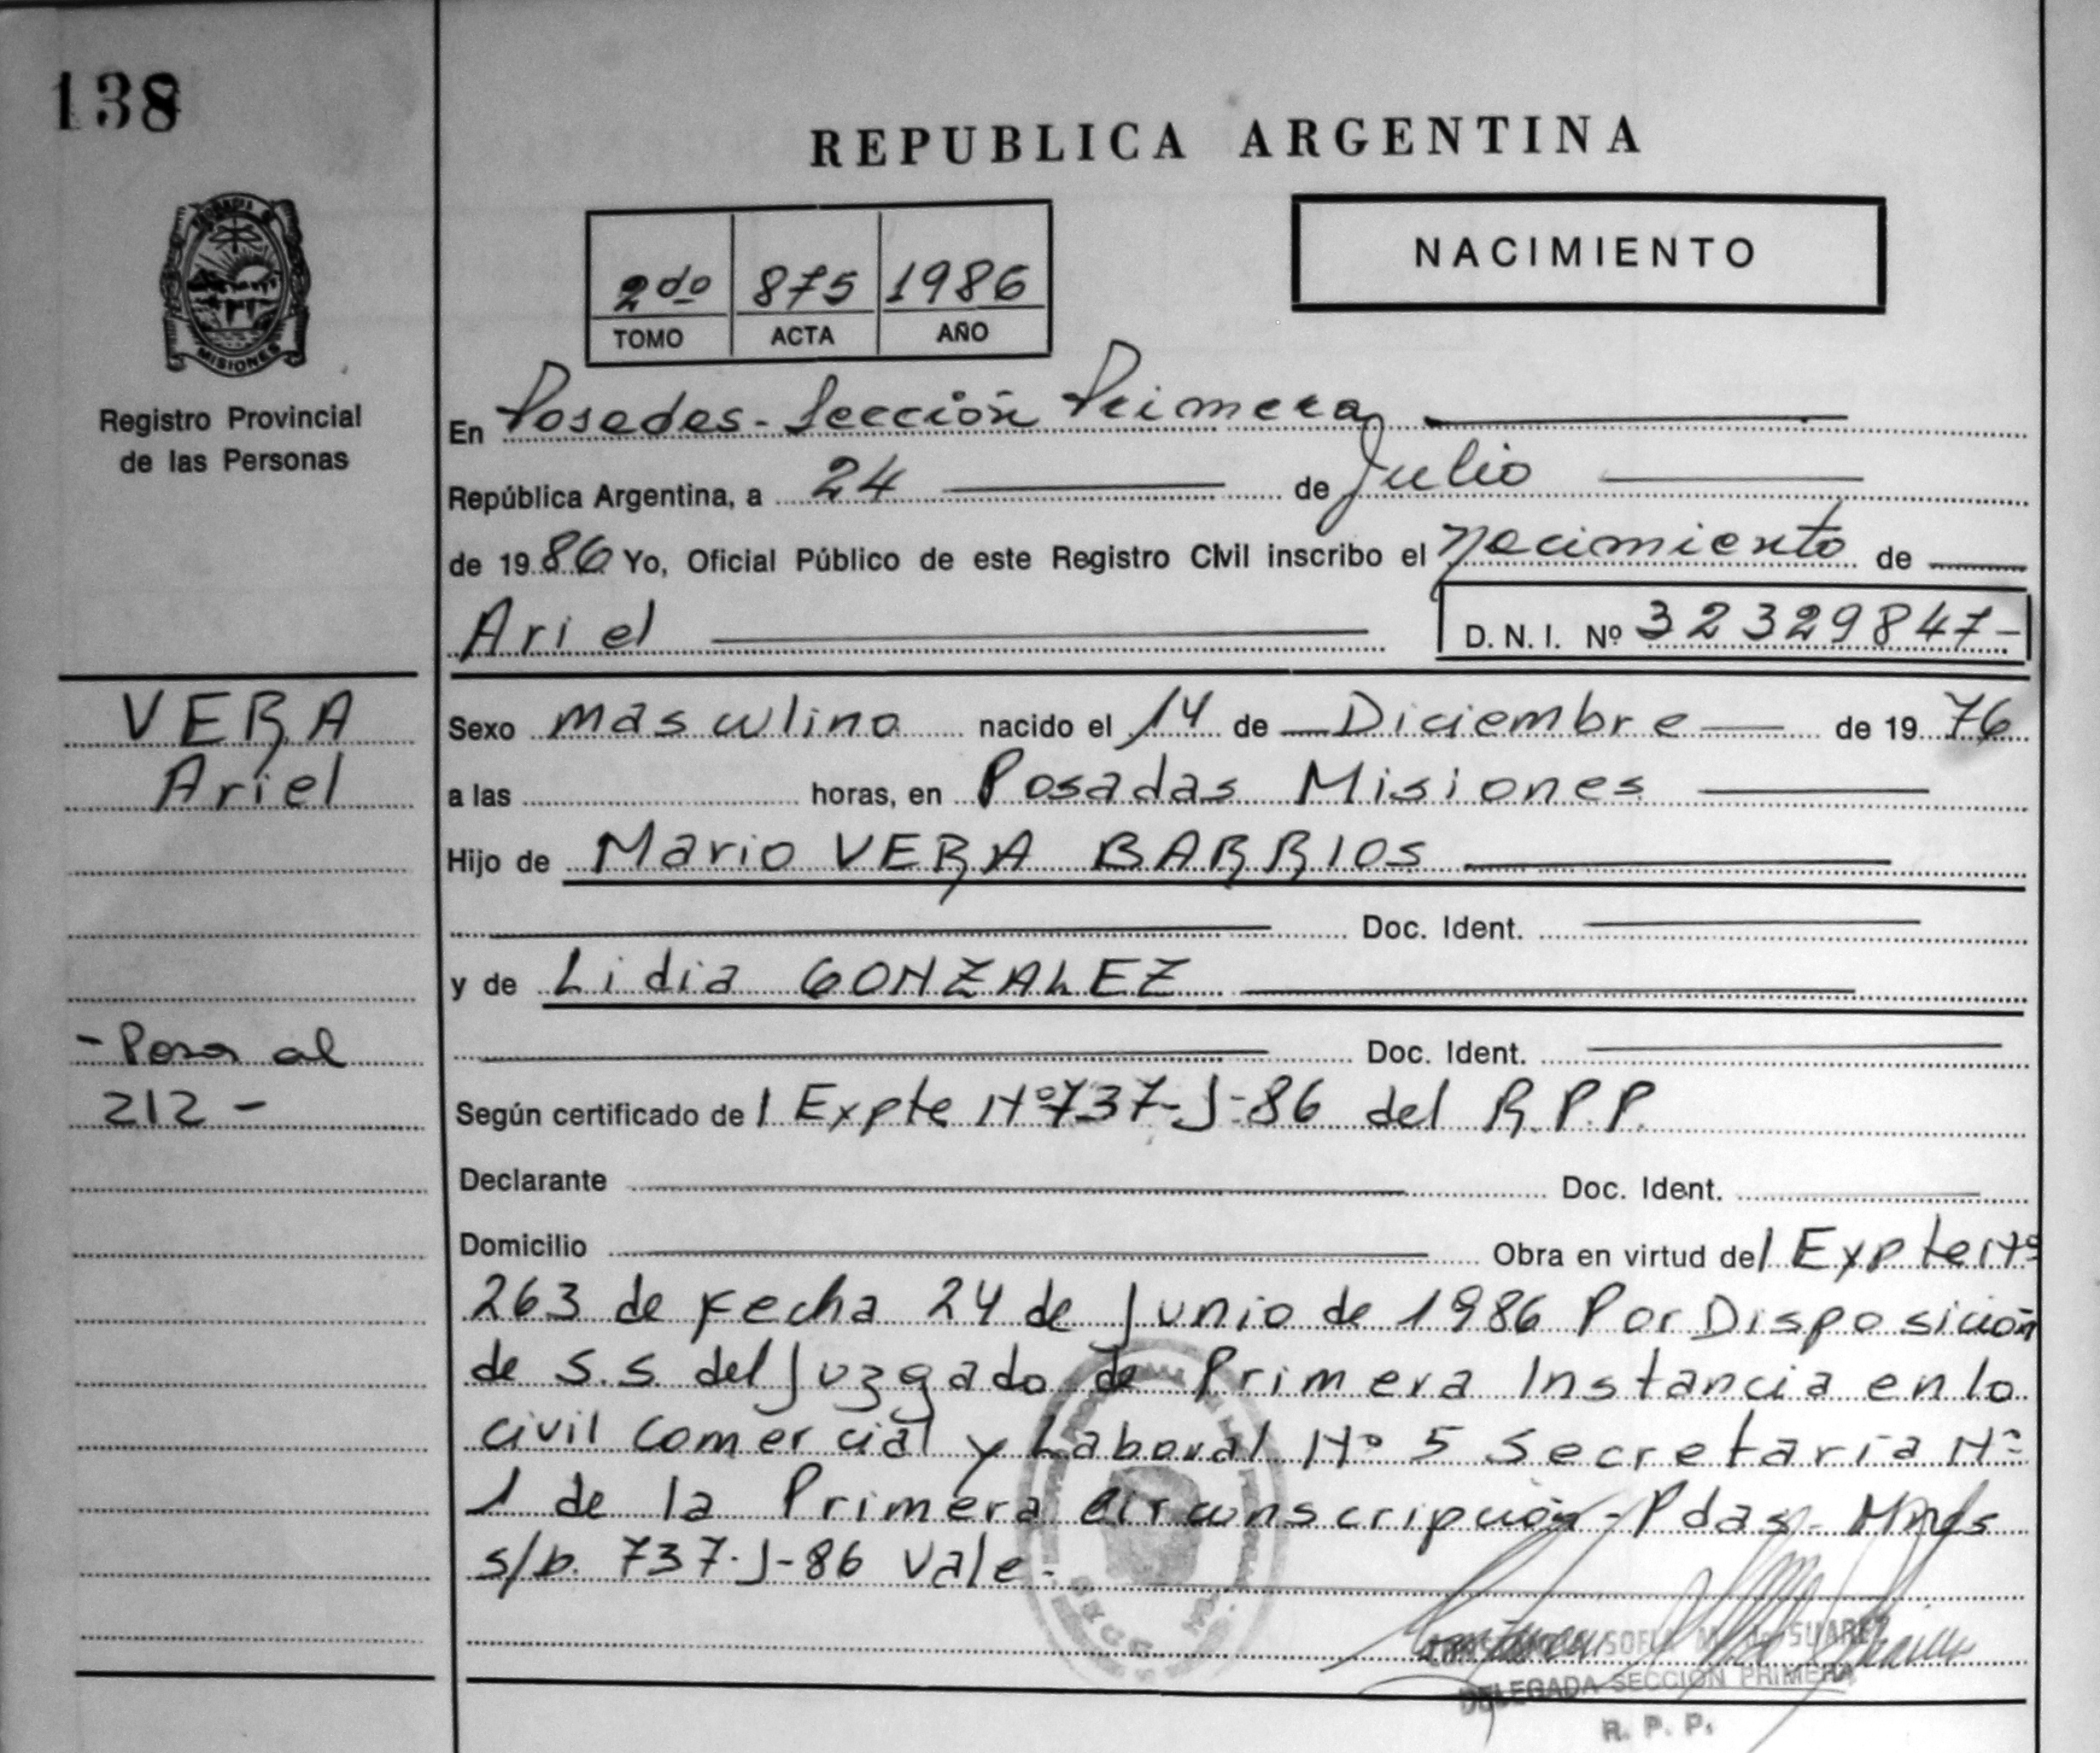 138
REPUBLICA ARGENTINA
NACIMIENTO
2do 875 1986
TOMO ACTA AÑO
MISIONES
Registro Provincial
de las Personas
En Posadas - Sección Primera
República Argentina, a 24 de Julio
de 1986 Yo, Oficial Público de este Registro Civil inscribo el Nacimiento de
Ariel D.N.I. Nº 32329847-
VERA
Ariel
- Pasa al
212 -
Sexo masculino nacido el 14 de Diciembre de 1976
a las horas, en Posadas Misiones
Hijo de Mario VERA BARRIOS
Doc. Ident.
y de Lidia GONZALEZ
Doc. Ident.
Según certificado del Expte Nº 737-J-86 del R.P.P.
Declarante Doc. Ident.
Domicilio Obra en virtud del Expte Nº
263 de Fecha 24 de Junio de 1986 Por Disposición
de S.S. del Juzgado de Primera Instancia en lo
civil comercial y Laboral Nº 5 Secretaria Nº
1 de la Primera circunscripción - Pdas - Mnes
s/p. 737-J-86 Vale.
SOFIA M. de SUAREZ
DELEGADA SECCION PRIMERA
R. P. P.